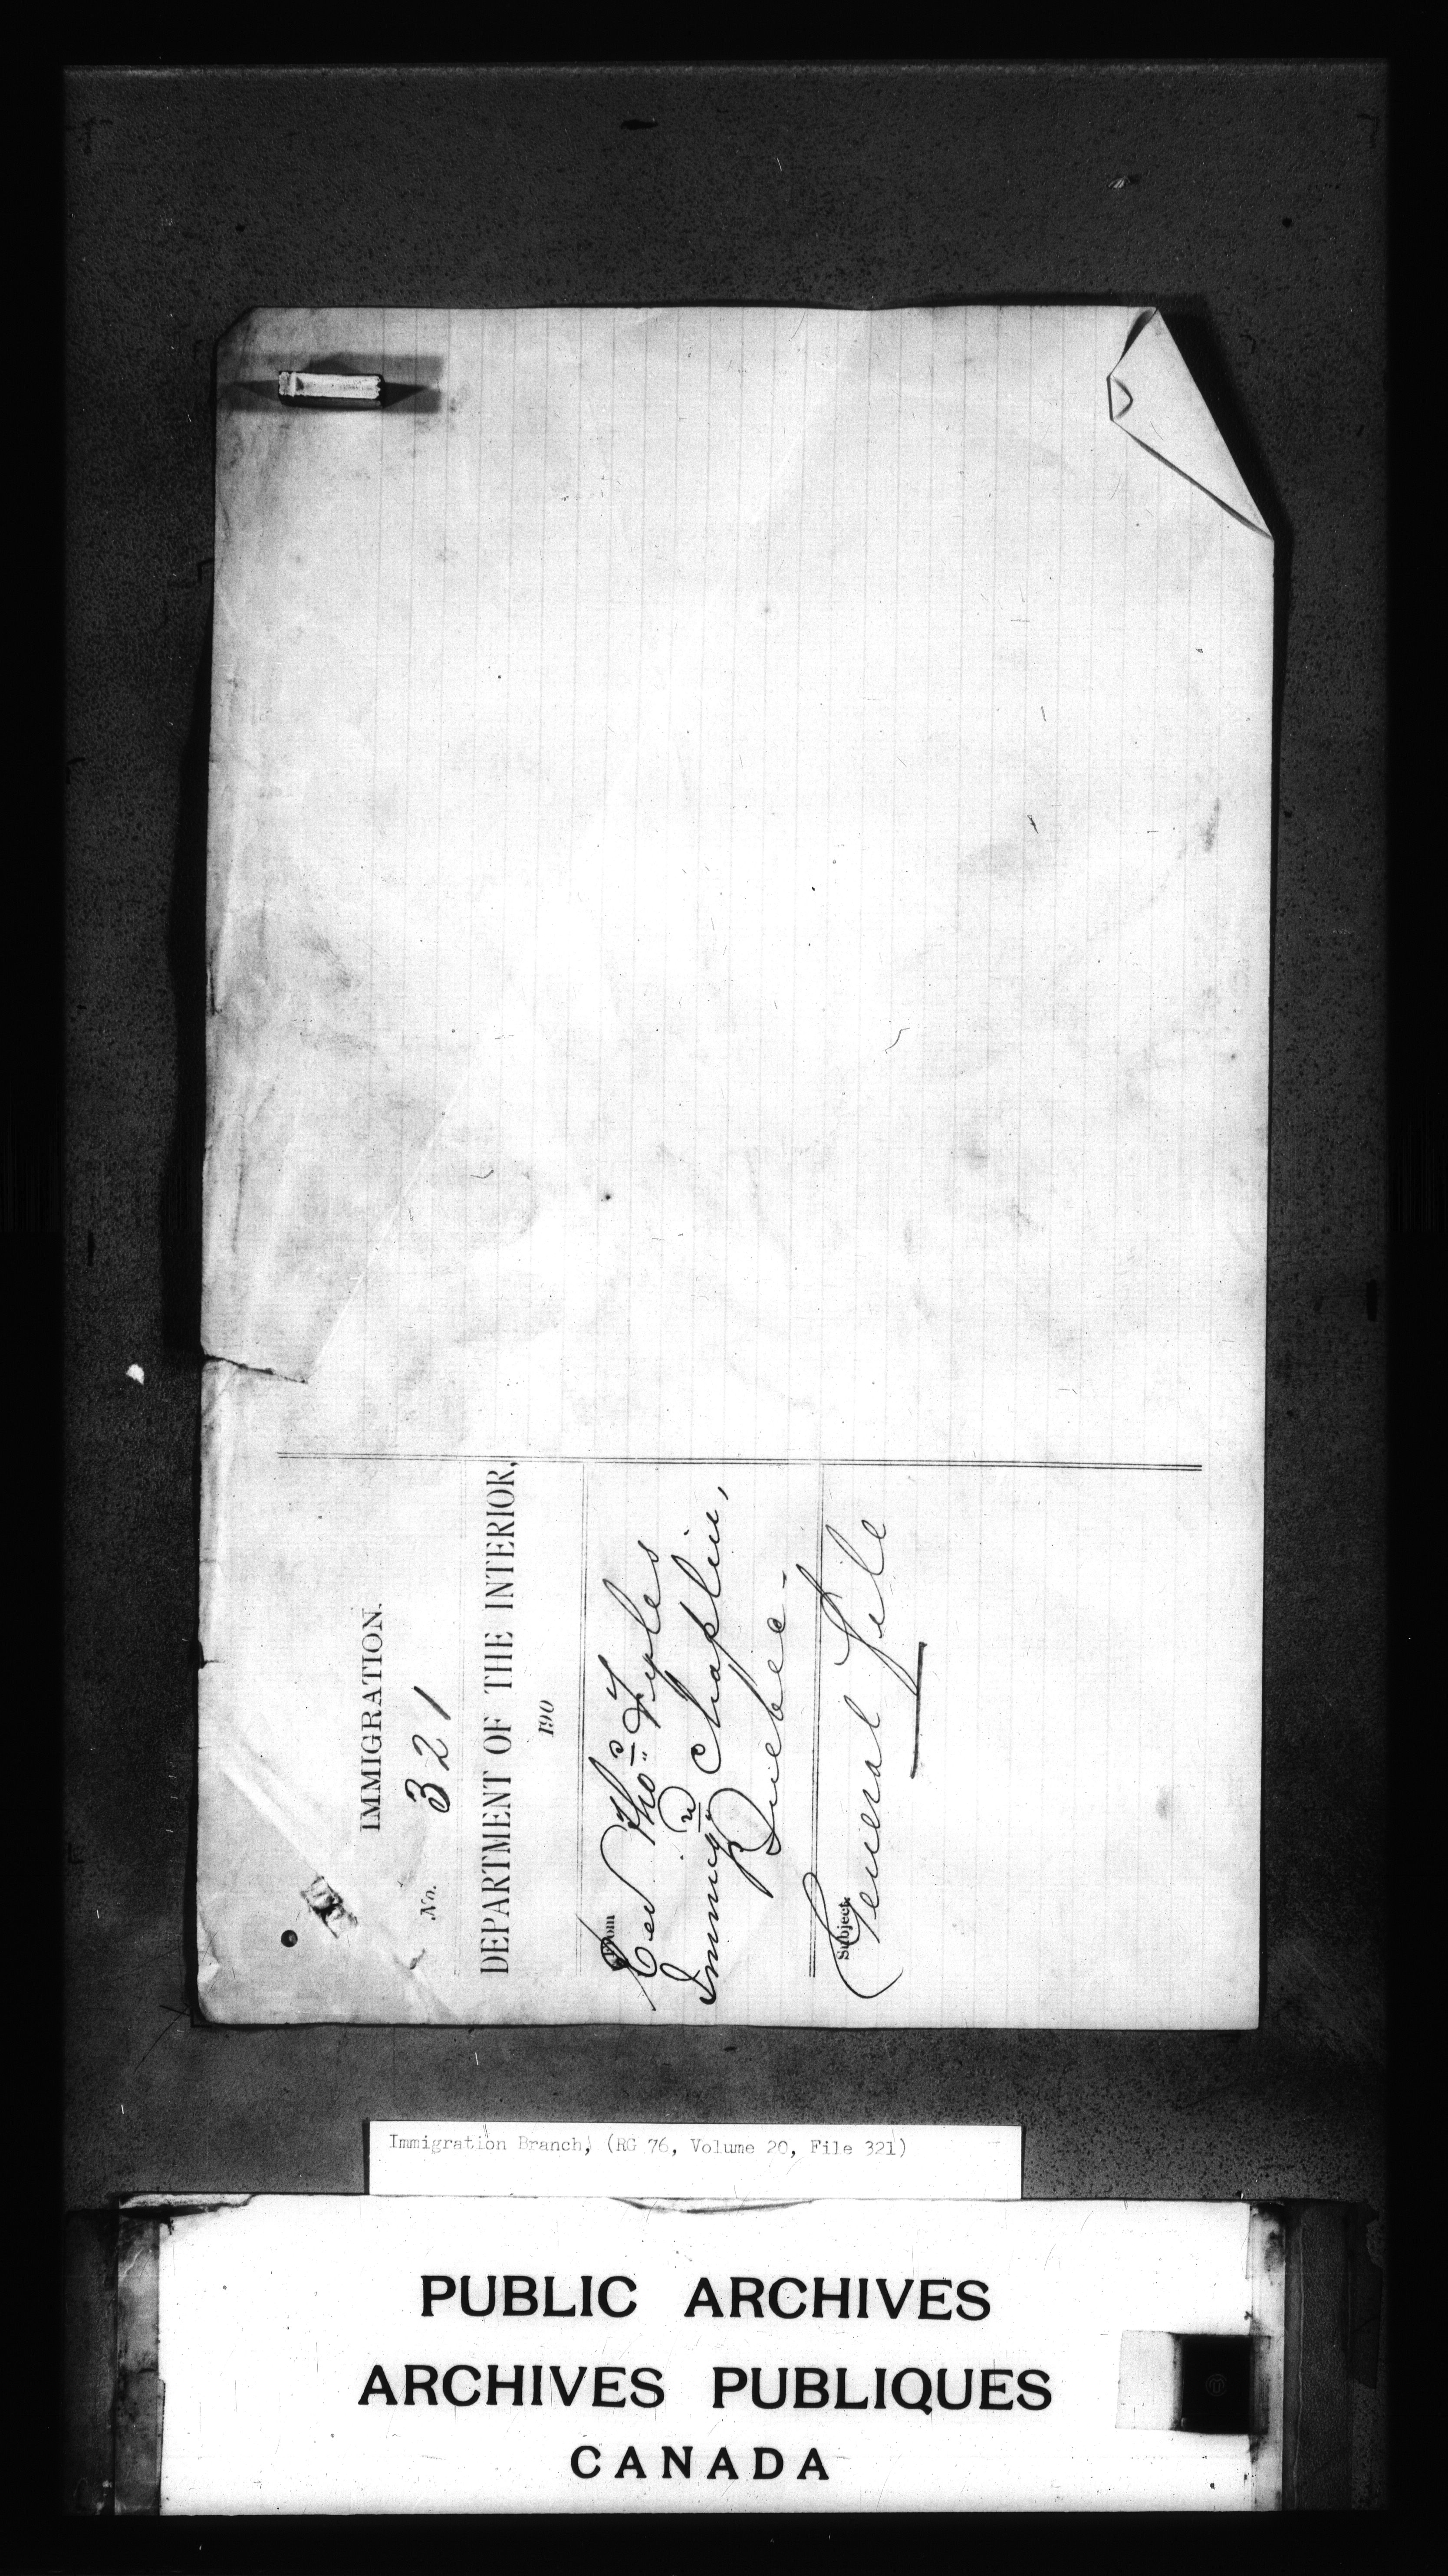 IMMIGRATION.
No. 321
DEPARTMENT OF THE INTERIOR,
190
From
Rev. Thos. Fyles
Immign Chaplin,
Quebec -
Subject.
General File
Immigration Branch, (RG 76, Volume 20, File 321)
PUBLIC ARCHIVES
ARCHIVES PUBLIQUES
CANADA